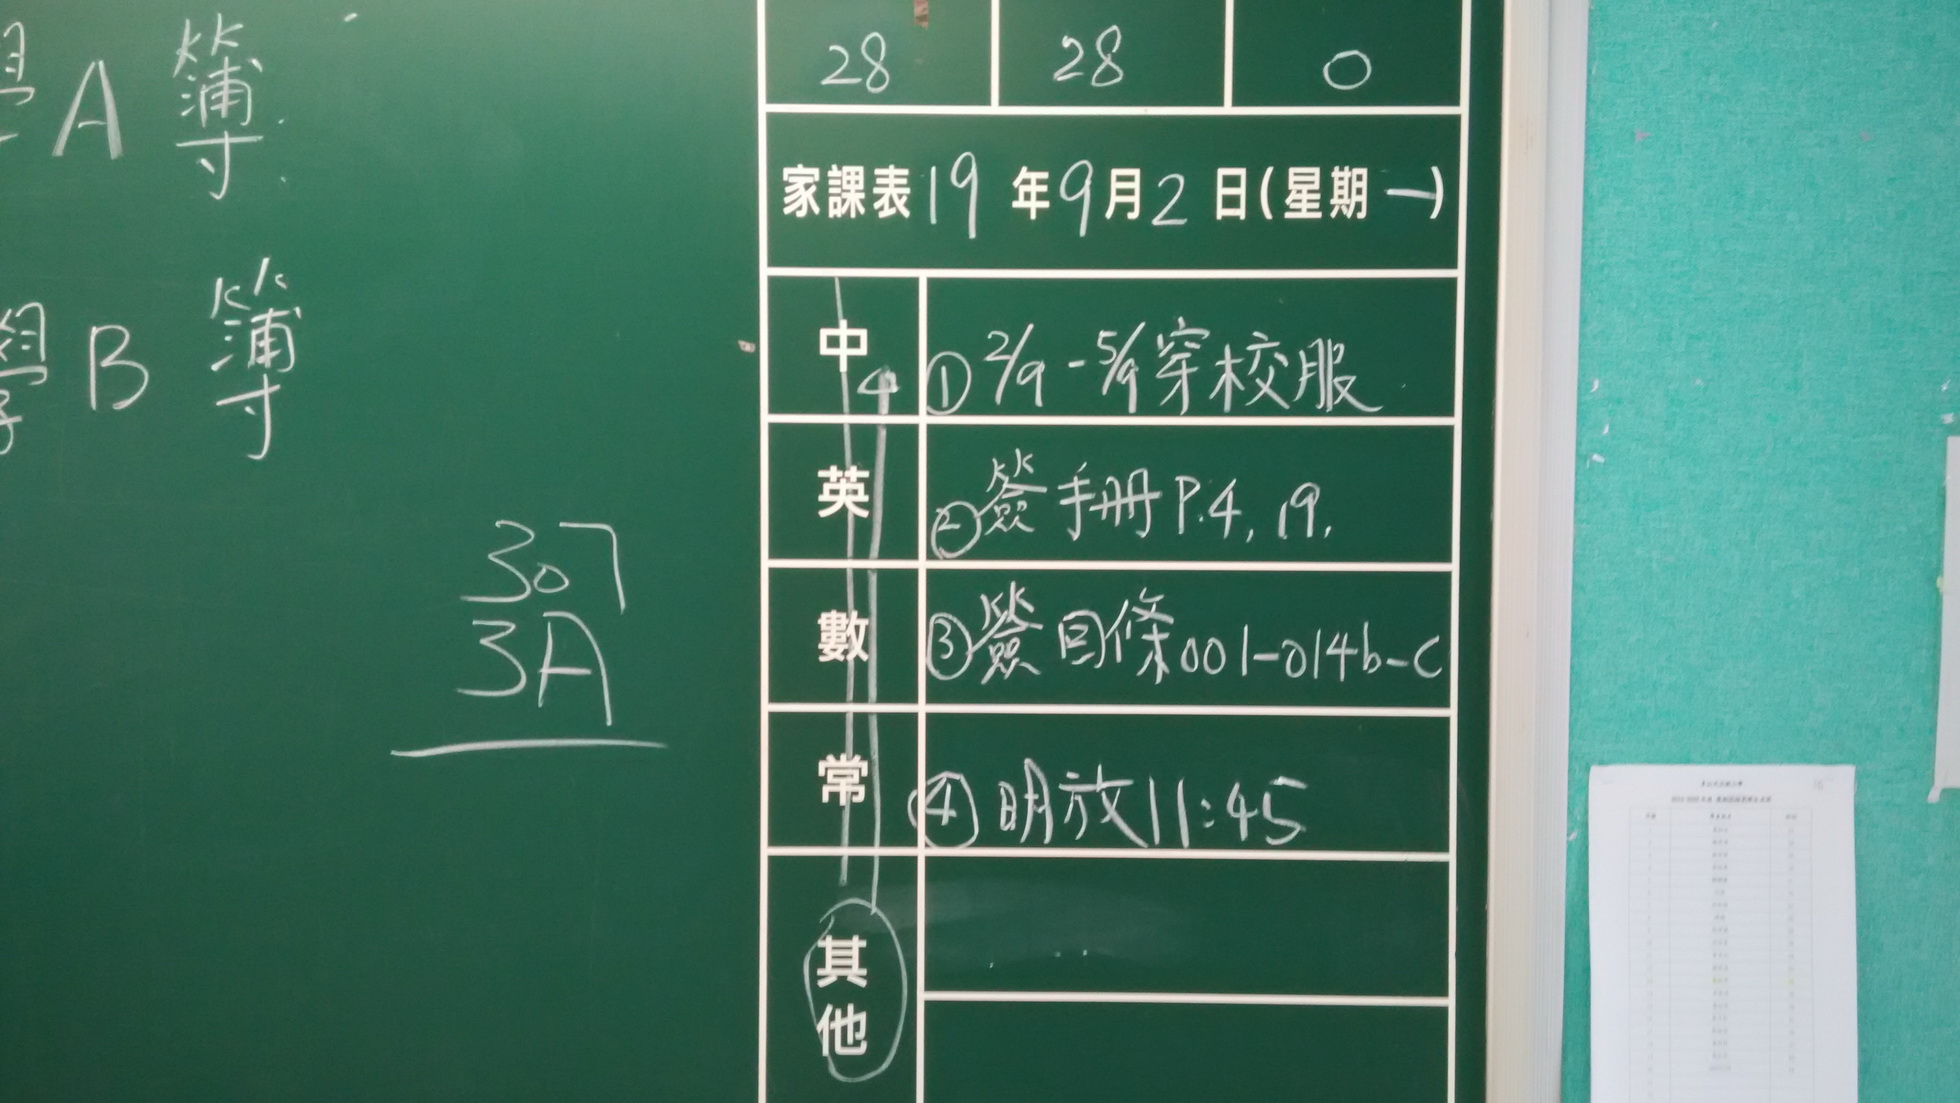 學 A 簿
學 B 簿
307
3A
28 28 0
家課表 19 年 9 月 2 日 (星期 一)
中 ① 2/9 - 5/9 穿校服
英 ② 簽手冊 P.4, 19.
數 ③ 簽回條 001-014b-c
常 ④ 明放 11:45
其他